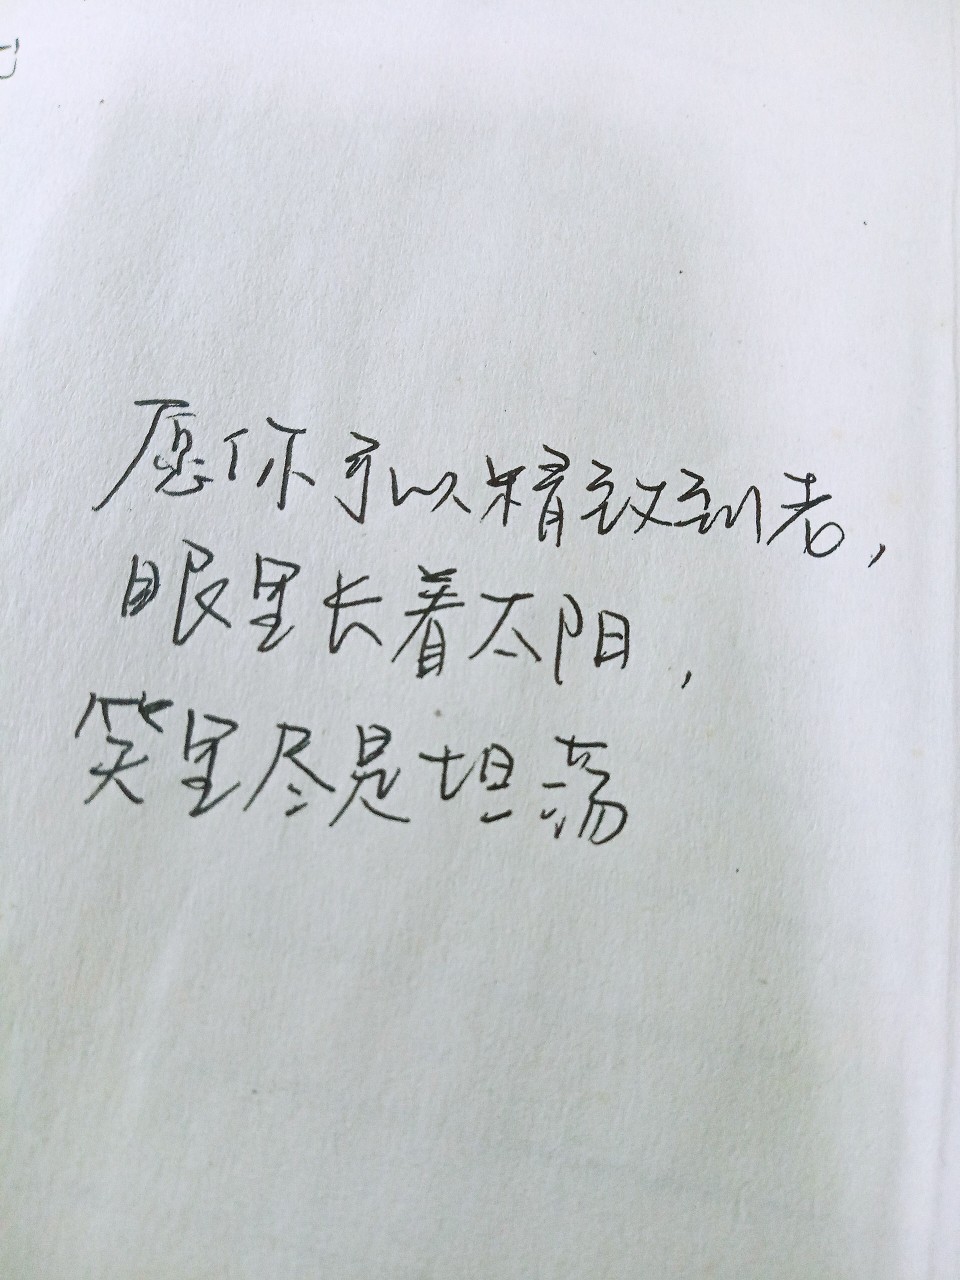 愿你可以精致到老,
眼里长着太阳,
笑里尽是坦荡